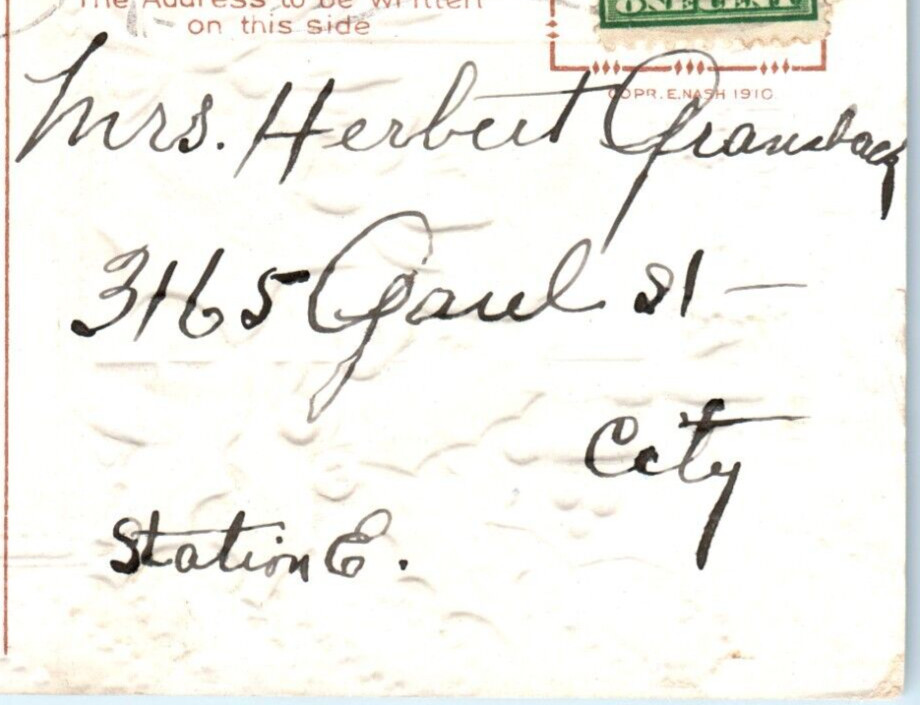 The Address to be written
on this side
ONE CENT
COPR. E. NASH 1910
Mrs. Herbert
3165 Gaul St —
City
Station E.